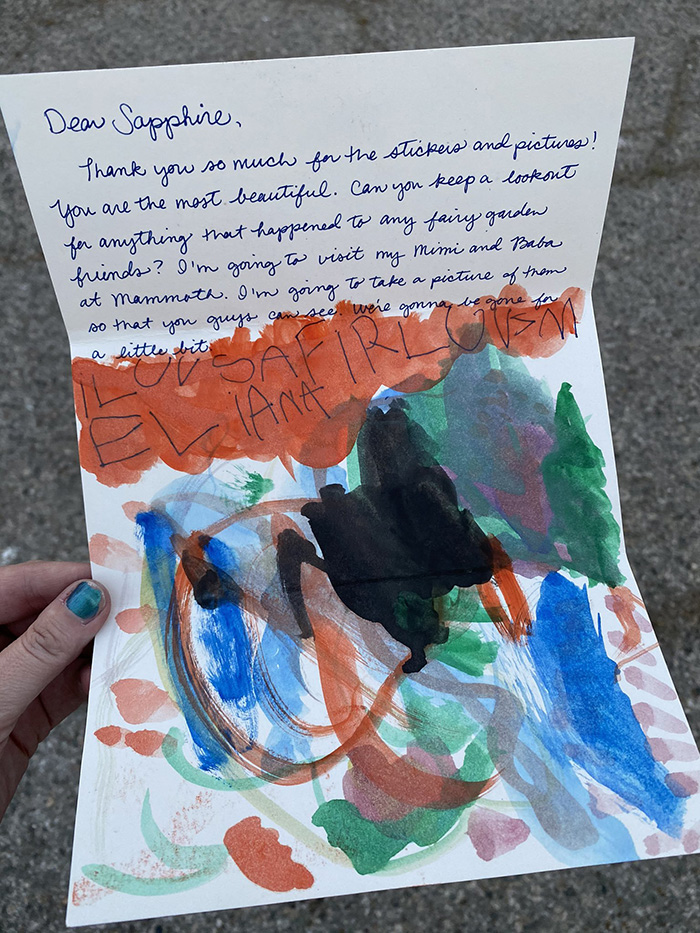 Dear Sapphire,
Thank you so much for the stickers and pictures!
You are the most beautiful. Can you keep a lookout
for anything that happened to any fairy garden
friends? I'm going to visit my Mimi and Baba
at Mammoth. I'm going to take a picture of them
so that you guys can see. We're gonna be gone for
a little bit.
I LOVE SAFIR LOVE M
ELIANA